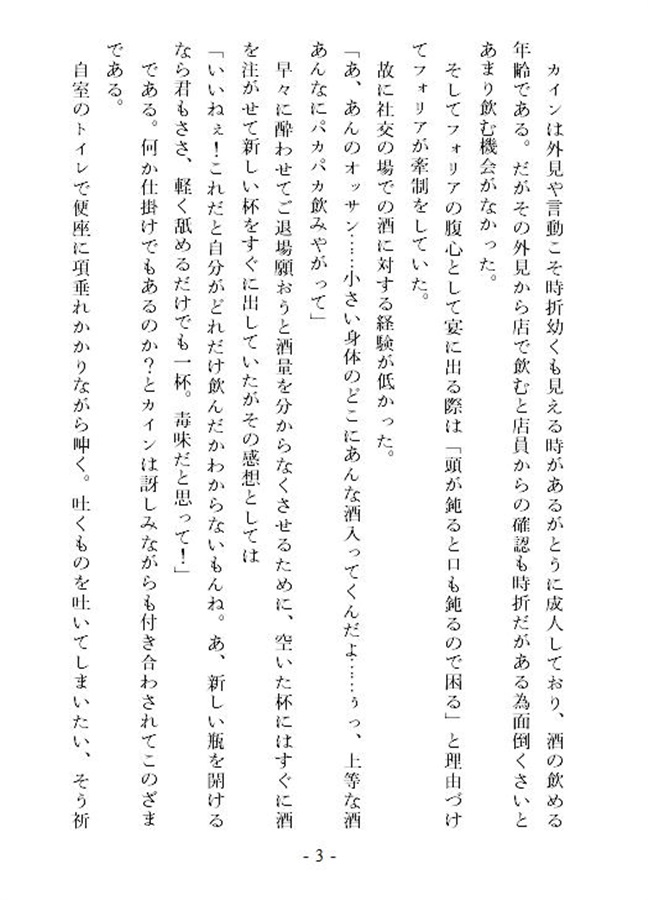 カインは外見や言動こそ時折幼くも見える時があるがとうに成人しており、酒の飲める
年齢である。だがその外見から店で飲むと店員からの確認も時折だがある為面倒くさいと
あまり飲む機会がなかった。
そしてフォリアの腹心として宴に出る際は「頭が鈍ると口も鈍るので困る」と理由づけ
てフォリアが牽制をしていた。
故に社交の場での酒に対する経験が低かった。
「あ、あんのオッサン……小さい身体のどこにあんな酒入ってくんだよ……ぅっ、上等な酒
あんなにパカパカ飲みやがって」
早々に酔わせてご退場願おうと酒量を分からなくさせるために、空いた杯にはすぐに酒
を注がせて新しい杯をすぐに出していたがその感想としては
「いいねぇ！これだと自分がどれだけ飲んだかわからないもんね。あ、新しい瓶を開ける
なら君もささ、軽く舐めるだけでも一杯。毒味だと思って！」
である。何か仕掛けでもあるのか？とカインは訝しみながらも付き合わされてこのざま
である。
自室のトイレで便座に項垂れかかりながら呻く。吐くものを吐いてしまいたい、そう祈
- 3 -